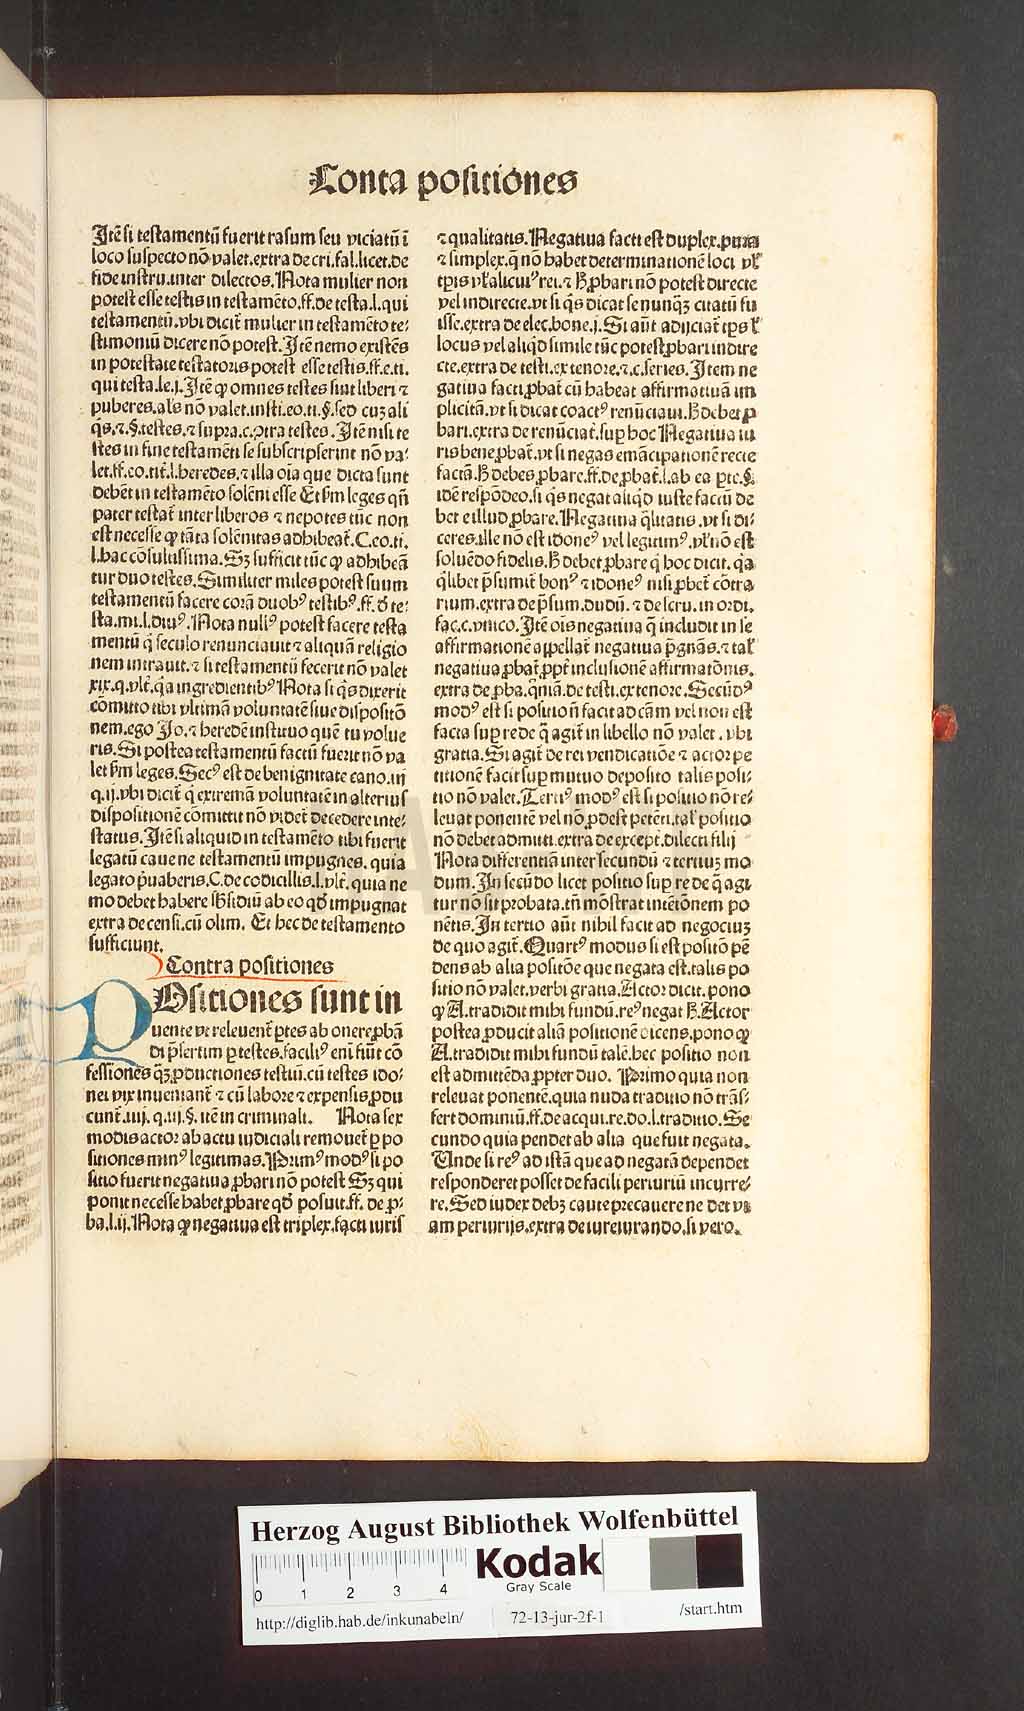 Conta positiones
Itē si testamentū fuerit rasum seu viciatū ī
loco suspecto nō valet.extra de cri.fal.licet.de
fide instru.inter dilectos.Nota mulier non
potest esse testis in testamēto.ff.de testa.l.qui
testamentū.vbi dicit̄ mulier in testamēto te⸗
stimoniū dicere nō potest.Itē nemo existēs
in potestate testatoris potest esse testis.ff.e.ti.
qui testa.le.j.Itē ꝙ omnes testes sint liberi ⁊
puberes.al's nō valet.insti.eo.ti.§.sed cuz ali
q̄s.⁊.§.testes.⁊ supra.c.ꝯtra testes.Itē nisi te
stes in fine testamēti se subscripserint nō va⸗
let.ff.eo.tit̄.l.heredes.⁊ illa oīa que dicta sunt
debēt in testamēto solēni esse Et ẜm leges qn̄
pater testat̄ inter liberos ⁊ nepotes tūc non
est necesse ꝙ tāta solēnitas adhibeat̄.C.eo.ti.
l.hac cōsultissima.Sꝫ sufficit tūc ꝙ adhibeā
tur duo testes.Similiter miles potest suum
testamentū facere corā duobꝰ testibꝰ.ff.ð te⸗
sta.mi.l.diuꝰ.Nota nulꝰ potest facere testa
mentū q̇ seculo renunciauit ⁊ aliquā religio
nem intrauit.⁊ si testamentū fecerit nō valet
xix.q.vlt̄.q̇a ingredientibꝰ Nota si q̇s dixerit
cōmitto tibi vltimā voluntatē siue dispositō
nem.ego Jo.⁊ heredē instituo quē tu volue
ris.Si postea testamentū factū fuerit nō va
let ẜm leges.Secꝰ est de benignitate cano.iij
q.ij.vbi dicit̄ q̇ extremā voluntatē in alterius
dispositionē cōmittit nō videt̄ decedere inte⸗
status.Itē si aliquid in testamēto tibi fuerit
legatū caue ne testamentū impugnes. quia
legato p̄uaberis.C.de codicillis.l.vlt̄. quia ne
mo debet habere sb̄sidiū ab eo qð impugnat
extra de censi.cū olim. Et hec de testamento
sufficiunt.
Contra positiones
POsitiones sunt in
uente vt releuent̄ ꝑtes ab onere ꝓbā
di p̄sertim ꝑ testes.faciliꝰ enī fiūt cō
fessiones q̄ꝫ ꝓductiones testiū.cū testes ido⸗
nei vix inueniant̄ ⁊ cū labore ⁊ expensis ꝓdu
cunt̄.iiij.q.iij.§.itē in criminali. Nota sex
modis actor ab actu iudiciali remouet̄ ꝑ po
sitiones minꝰ legitimas.Primꝰ modꝰ si po
sitio fuerit negatiua ꝓbari nō potest Sꝫ qui
ponit necesse habet ꝓbare qð posuit.ff. de ꝓ⸗
ba.l.ij.Nota ꝙ negatiua est triplex.facti iuris
⁊ qualitatis.Negatiua facti est duplex.pura
⁊ simplex.q̄ nō habet determinationē loci vl'
tp̄is vl' alicuiꝰ rei.⁊ ħ ꝓbari nō potest directe
vel indirecte.vt si q̇s dicat se nunqꝫ citatū fu
isse.extra de elec.bone.j.Si aūt adijciat̄ tp̄s l'
locus vel aliq̇d simile tūc potest ꝓbari indire
cte.extra de testi.ex tenore.⁊.c.series.Item ne
gatiua facti ꝓbat̄ cū habeat affirmatiuā im
plicitā.vt si dicat coactꝰ renūciaui.ħ debet ꝓ
bari.extra de renūciat̄.suꝑ hoc Negatiua iu
ris bene ꝓbat̄.vt si negas emācipationē recte
factā.ħ debes ꝓbare.ff.de ꝓbat̄.l.ab ea ꝑte.§.
idē respōdeo.si q̇s negat aliq̇d iuste factū de
bet e illud ꝓbare.Negatiua q̄litatis.vt si di⸗
ceres.ille nō est idoneꝰ vel legitimꝰ.vl' nō est
soluēdo fidelis.ħ debet ꝓbare q̇ hoc dicit. q̇a
q̇libet p̄sumit̄ bonꝰ ⁊ idoneꝰ nisi ꝓbet̄ cōtra
rium.extra de p̄sum.dudū.⁊ de scru.in ordi.
fac.c.vnico.Itē oīs negatiua q̄ includit in se
affirmationē appellat̄ negatiua p̄gnās.⁊ tal'
negatiua ꝓbat̄ ꝓpt̄ inclusionē affirmatōnis.
extra de ꝓba.qm̄ā.de testi.ex tenore.Secūdꝰ
modꝰ est si positio n̄ facit ad cām vel non est
facta suꝑ re de q̄ agit̄ in libello nō valet.vbi
gratia.Si agit̄ de rei vendicatiōe ⁊ actor pe
titionē facit suꝑ mutuo deposito talis posi⸗
tio nō valet.Tertiꝰ modꝰ est si positio nō re⸗
leuat ponentē vel nō ꝓdest petēti.tal' positio
nō debet admitti.extra de except̄.dilecti filij
Nota differentiā inter secundū ⁊ tertiuꝫ mo
dum.In secūdo licet positio suꝑ re de q̄ agi
tur nō sit probata.tn̄ mōstrat intētionem po
nētis.In tertio aūt nihil facit ad negociuꝫ
de quo agit̄.Quartꝰ modus si est positō pē
dens ab alia positōe que negata est.talis po
sitio nō valet.verbi gratia.Actor dicit.pono
ꝙ A.tradidit mihi fundū.reꝰ negat ħ.Actor
postea ꝓducit aliā positionē dicens.pono ꝙ
A.tradidit mihi fundū talē.hec positio non
est admittēda ꝓpter duo. Primo quia non
releuat ponentē.quia nuda traditio nō trās⸗
fert dominiū.ff.de acqui.re.do.l.traditio.Se
cundo quia pendet ab alia que fuit negata.
Unde si reꝰ ad istā que ad negatā dependet
responderet posset de facili periuriū incurre⸗
re.Sed iudex debꝫ caute precauere ne det vi
am periurijs.extra de iureiurando.si vero.
Herzog August Bibliothek Wolfenbüttel
0 1 2 3 4
Kodak
Gray Scale
http://diglib.hab.de/inkunabeln/ 72-13-jur-2f-1 /start.htm